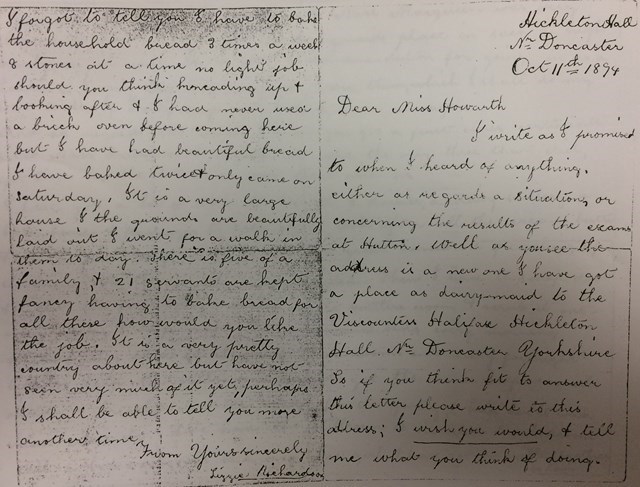 Hickleton Hall
Nr Doncaster
Oct 11th 1894
Dear Miss Howarth
I write as I promised
to when I heard of anything.
either as regards a situation, or
concerning the results of the exams
at Hutton. Well as you see the
address is a new one I have got
a place as dairy-maid to the
Viscountess Halifax Hickleton
Hall, Nr Doncaster Yorkshire
So if you think fit to answer
this letter please write to this
address; I wish you would, & tell
me what you think of doing.
I forgot to tell you I have to bake
the household bread 3 times a week
8 stones at a time no light job
should you think kneading up &
looking after & I had never used
a brick oven before coming here
but I have had beautiful bread
I have baked twice & only came on
Saturday. It is a very large
house & the grounds are beautifully
laid out I went for a walk in
them to day. There is five of a
family & 21 servants are kept
fancy having to bake bread for
all these how would you like
the job. It is a very pretty
country about here but have not
seen very much of it yet, perhaps
I shall be able to tell you more
another time.
From Yours sincerely
Lizzie Richardson